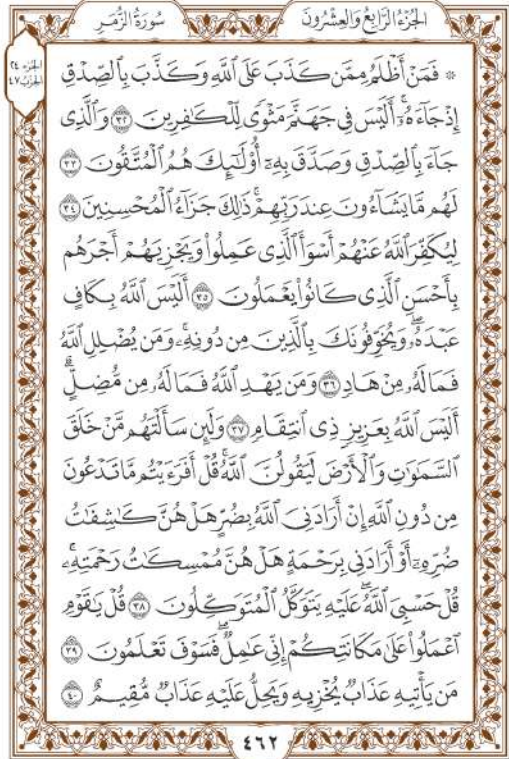 سُورَةُ الزُّمَرِ
الجُزْءُ الرَّابِعُ وَالعِشْرُونَ
الجزء ٢٤
الحزب ٤٧
۞ فَمَنْ أَظْلَمُ مِمَّن كَذَبَ عَلَى ٱللَّهِ وَكَذَّبَ بِٱلصِّدْقِ
إِذْ جَآءَهُۥٓۚ أَلَيْسَ فِى جَهَنَّمَ مَثْوًى لِّلْكَٰفِرِينَ ۝٣٢ وَٱلَّذِى
جَآءَ بِٱلصِّدْقِ وَصَدَّقَ بِهِۦٓ أُوْلَٰٓئِكَ هُمُ ٱلْمُتَّقُونَ ۝٣٣
لَهُم مَّا يَشَآءُونَ عِندَ رَبِّهِمْۚ ذَٰلِكَ جَزَآءُ ٱلْمُحْسِنِينَ ۝٣٤
لِيُكَفِّرَ ٱللَّهُ عَنْهُمْ أَسْوَأَ ٱلَّذِى عَمِلُواْ وَيَجْزِيَهُمْ أَجْرَهُم
بِأَحْسَنِ ٱلَّذِى كَانُواْ يَعْمَلُونَ ۝٣٥ أَلَيْسَ ٱللَّهُ بِكَافٍ
عَبْدَهُۥۖ وَيُخَوِّفُونَكَ بِٱلَّذِينَ مِن دُونِهِۦۚ وَمَن يُضْلِلِ ٱللَّهُ
فَمَا لَهُۥ مِنْ هَادٍ ۝٣٦ وَمَن يَهْدِ ٱللَّهُ فَمَا لَهُۥ مِن مُّضِلٍّۗ
أَلَيْسَ ٱللَّهُ بِعَزِيزٍ ذِى ٱنتِقَامٍ ۝٣٧ وَلَئِن سَأَلْتَهُم مَّنْ خَلَقَ
ٱلسَّمَٰوَٰتِ وَٱلْأَرْضَ لَيَقُولُنَّ ٱللَّهُۚ قُلْ أَفَرَءَيْتُم مَّا تَدْعُونَ
مِن دُونِ ٱللَّهِ إِنْ أَرَادَنِىَ ٱللَّهُ بِضُرٍّ هَلْ هُنَّ كَٰشِفَٰتُ
ضُرِّهِۦٓ أَوْ أَرَادَنِى بِرَحْمَةٍ هَلْ هُنَّ مُمْسِكَٰتُ رَحْمَتِهِۦۚ
قُلْ حَسْبِىَ ٱللَّهُۖ عَلَيْهِ يَتَوَكَّلُ ٱلْمُتَوَكِّلُونَ ۝٣٨ قُلْ يَٰقَوْمِ
ٱعْمَلُواْ عَلَىٰ مَكَانَتِكُمْ إِنِّى عَٰمِلٌۖ فَسَوْفَ تَعْلَمُونَ ۝٣٩
مَن يَأْتِيهِ عَذَابٌ يُخْزِيهِ وَيَحِلُّ عَلَيْهِ عَذَابٌ مُّقِيمٌ ۝٤٠
٤٦٢